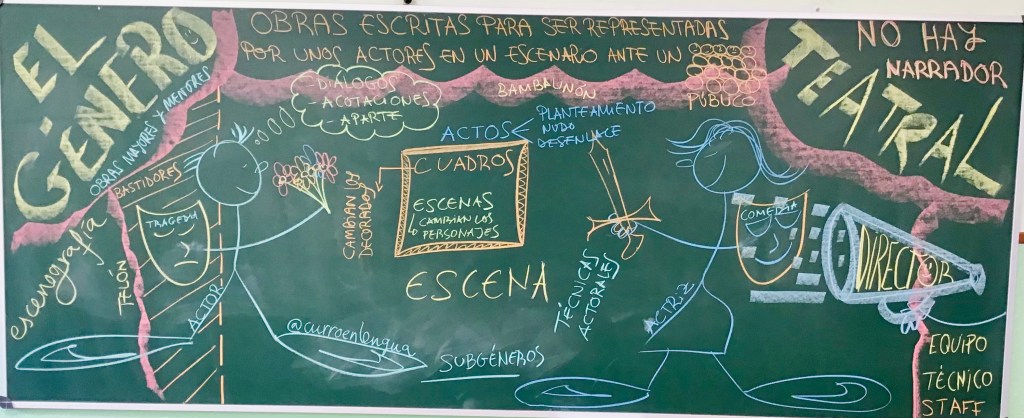 EL
GÉNERO
OBRAS ESCRITAS PARA SER REPRESENTADAS
POR UNOS ACTORES EN UN ESCENARIO ANTE UN
PÚBLICO
TEATRAL
NO HAY
NARRADOR
OBRAS MAYORES Y MENORES
BASTIDORES
DIÁLOGOS
- ACOTACIONES
- APARTE
BAMBALINÓN
ACTOS
PLANTEAMIENTO
NUDO
DESENLACE
CUADROS
CAMBIAN LOS
DECORADOS
ESCENAS
CAMBIAN LOS
PERSONAJES
escenografía
TELÓN
TRAGEDIA
ACTOR
ESCENA
TÉCNICAS
ACTORALES
ACTRIZ
COMEDIA
DIRECTOR
@curroenlengua
SUBGÉNEROS
EQUIPO
TÉCNICO
STAFF